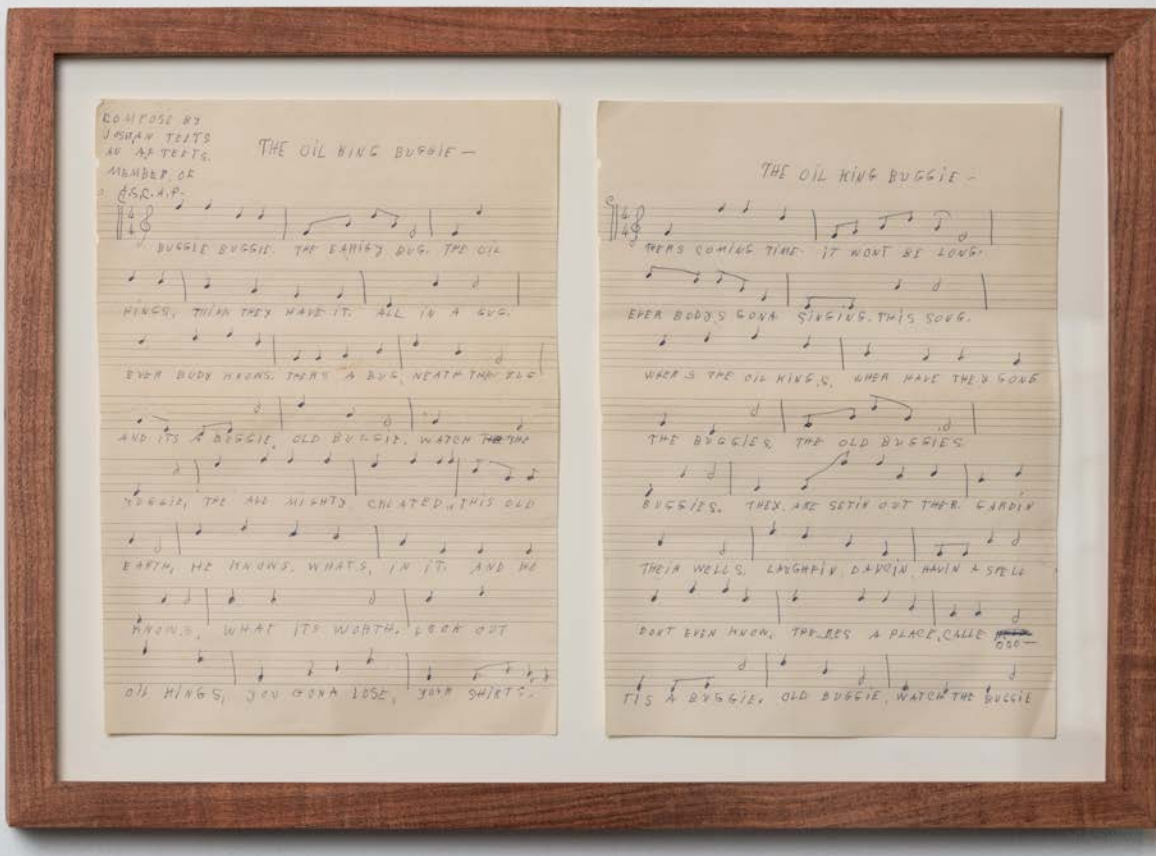 COMPOSE BY
MEMBER, OF
A.S.C.A.P.
THE OIL KING BUGGIE —
BUGGIE BUGGIE. THE BUG. THE OIL
KINGS, THINK THEY HAVE IT. ALL IN A
EVER BODY KNOWS. THERS A BUG, NEATH THE
AND ITS A BUGGIE, OLD BUGGIE. WATCH THE
THE ALL MIGHTY CREATED, THIS OLD
EARTH, HE KNOWS, WHATS, IN IT. AND HE
KNOWS, WHAT ITS WORTH, LOOK OUT
OIL KINGS, YOU GONA LOSE, YOUR SHIRTS.
THE OIL KING BUGGIE —
THERS COMING TIME. IT WONT BE LONG.
EVER BODYS GONA SINGING. THIS SONG.
WHERS THE OIL KING,S, WHER HAVE THEY GONG
THE BUGGIES, THE OLD BUGGIES
BUGGIES. THEY ARE SETIN OUT THER. GARDIN
THEIR WELLS, LAUGHFIN DANCIN HAVIN A SPELL
DONT EVEN KNOW, A PLACE, CALLE
TIS A BUGGIE. OLD BUGGIE, WATCH THE BUGGIE